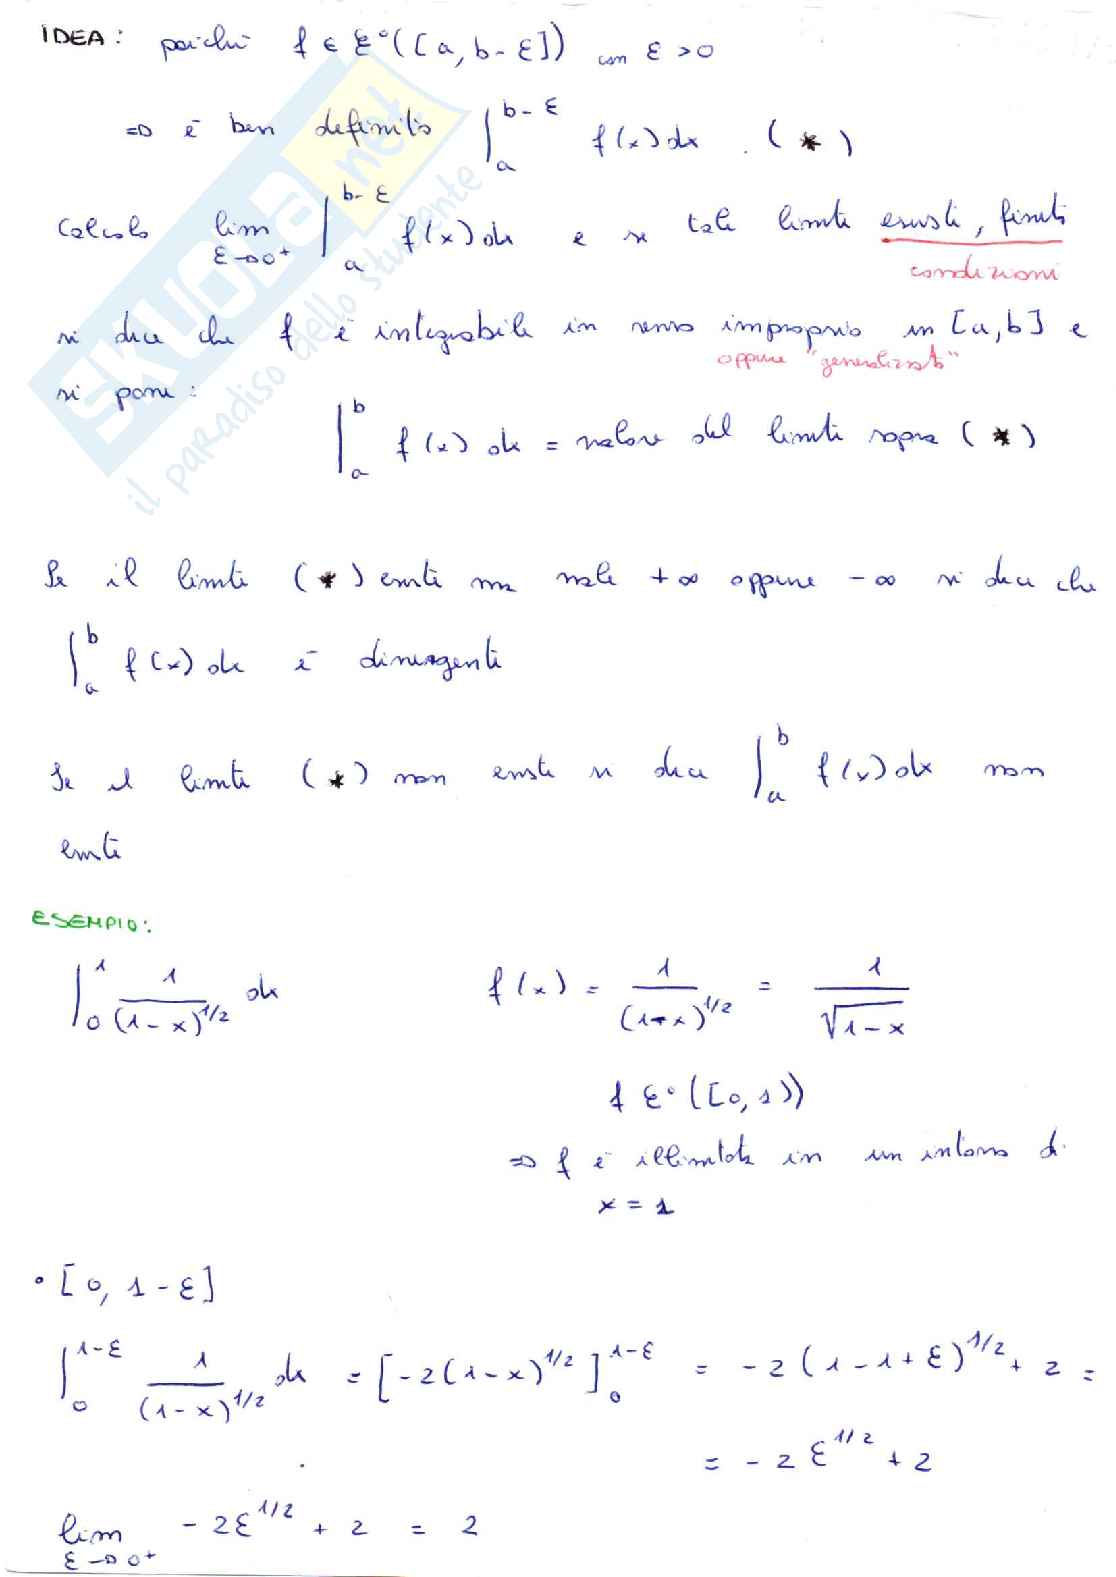 IDEA: poiché f ∈ C°([a, b-ε]) con ε>0
=> è ben definito ∫_a^{b-ε} f(x) dx . (*)
Calcolo lim_{ε→0⁺} ∫_a^{b-ε} f(x) dx e se tale limite esiste, finito
condizioni
si dice che f è integrabile in senso improprio in [a,b] e
oppure "generalizzato"
si pone:
∫_a^b f(x) dx = valore del limite sopra (*)
Se il limite (*) esiste ma vale +∞ oppure -∞ si dice che
∫_a^b f(x) dx è divergente
Se il limite (*) non esiste si dice ∫_a^b f(x) dx non
esiste
ESEMPIO:
∫_0^1 1/(1-x)^{1/2} dx f(x) = 1/(1-x)^{1/2} = 1/√(1-x)
f C°([0,1))
=> f è illimitata in un intorno di
x = 1
• [0, 1-ε]
∫_0^{1-ε} 1/(1-x)^{1/2} dx = [-2(1-x)^{1/2}]_0^{1-ε} = -2(1-1+ε)^{1/2} + 2 =
= -2ε^{1/2} + 2
lim_{ε→0⁺} -2ε^{1/2} + 2 = 2
SKUOLA.net
il paradiso dello studente